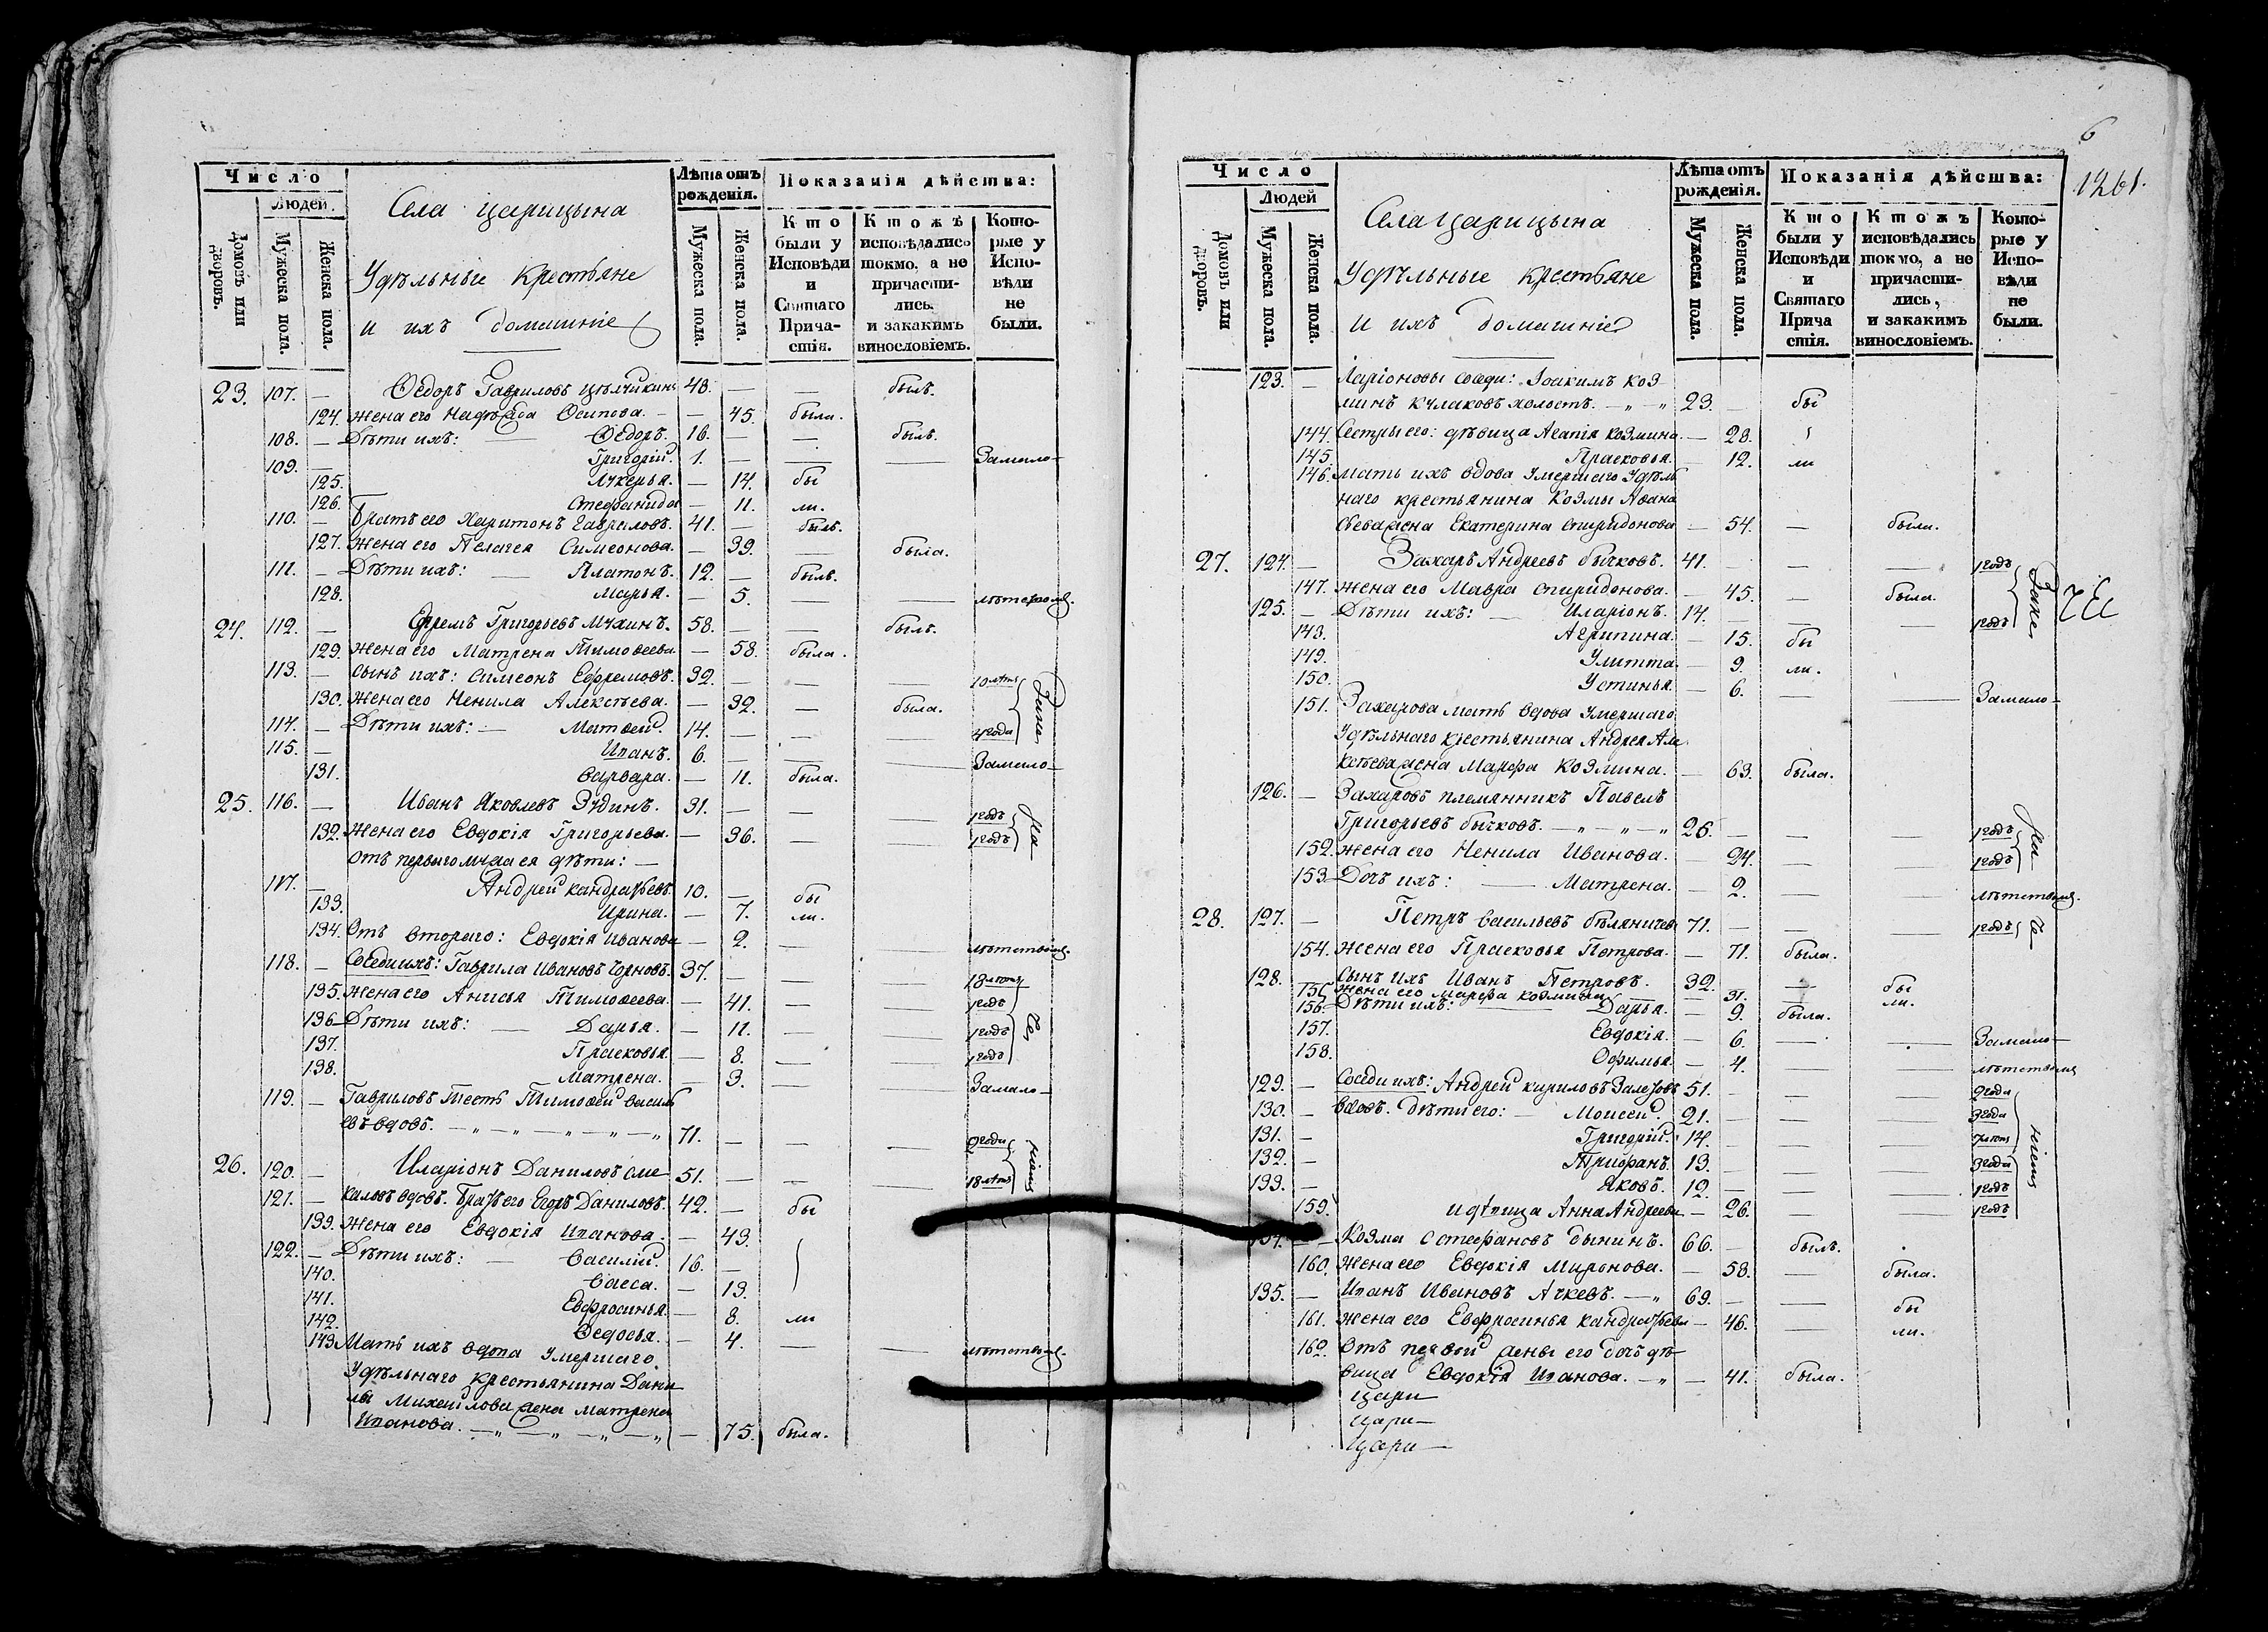 Число
Людей
Домовъ или дворовъ.
Мужеска пола.
Женска пола.
Села Царицына
Удѣльные Крестьяне
и ихъ домашніе
Лѣта отъ рожденія.
Мужеска пола.
Женска пола.
Показанія дѣйства:
Кто были у Исповѣди и Святаго Причастія.
Ктожъ исповѣдались токмо, а не причастились, и закакимъ винословіемъ.
Которые у Исповѣди не были.
23. 107. — Ѳедоръ Гавриловъ 48. — — былъ.
124. жена его Надежда Осипова. — — 45. была.
108. — Дѣти ихъ: — Ѳедоръ. 16. — — былъ.
109. — Григорій. 1. — — — Замало—
125. Лукерья. — 14. бы
126. Стефанида — 11. ли.
110. — Братъ его Харитонъ Гавриловъ. 41. — былъ.
127. жена его Пелагея Симеонова. — 39. — была.
111. — Дѣти ихъ: — Платонъ. 12. — былъ.
128. Марья. — 5. — —
24. 112. — Ефремъ Григорьевъ Мухинъ. 58. — — былъ.
129. жена его Матрена Тимоѳеева — 58. была.
113. — сынъ ихъ: Симеонъ Ефремовъ. 32. — — — 10 лѣтъ
130. жена его Ненила Алексѣева. — 32. — была.
114. — Дѣти ихъ: — Матѳей. 14. — — — 4 года
115. — Иванъ. 6. — — — Замало—
131. Варвара. — 11. была.
25. 116. — Иванъ Яковлевъ Зудинъ. 31. — — — 1 годъ
132. жена его Евдокія Григорьева. — 36. — — 1 годъ
отъ перваго мужа ея дѣти: —
117. — Андрей Кандратьевъ 10. — бы
133. Ирина. — 7. ли.
134. Отъ втораго: Евдокія Иванова — 2. — —
118. — Соседи ихъ: Гаврила Ивановъ Чорновъ. 37. — 13 лѣтъ
135. жена его Анисья Тимоѳеева. — 41. — — 1 годъ
136. Дѣти ихъ: — Дарья. — 11. — — 1 годъ
137. Прасковья. — 8. — — 1 годъ
138. Матрена. — 3. — — Замало—
119. — Гавриловъ тесть Тимоѳей Василь
евъ вдовъ. — 71. — — — 2 года
26. 120. — Иларіонъ Даниловъ Сме 51. — — — 18 лѣтъ
121. — каловъ вдовъ. Братъ его Егоръ Даниловъ. 42. — бы
139. жена его Евдокія Иванова. — 43.
122. — Дѣти ихъ: — Василій. 16. —
140. Васса. — 13.
141. Евфросинья. — 8. ли
142. Ѳедосья. — 4. — —
143. Мать ихъ вдова умершаго
Удѣльнаго крестьянина Дани
лы Михеилова жена Матрена
Иванова. — 75. была.
6
1261.
Число
Людей
Домовъ или дворовъ.
Мужеска пола.
Женска пола.
Села Царицына
Удѣльные крестьяне
и ихъ домашніе
Лѣта отъ рожденія.
Мужеска пола.
Женска пола.
Показанія дѣйства:
Кто были у Исповѣди и Святаго Причастія.
Ктожъ исповѣдались токмо, а не причастились, и закакимъ винословіемъ.
Которые у Исповѣди не были.
123. — Ларіоновы соседи: Іоакимъ Коз
минъ Кулаковъ холостъ. — 23. — бы
144. Сестры его: дѣвица Агапія Козмина. — 28.
145. Прасковья. — 12. ли
146. Мать ихъ вдова умершаго Удѣль
наго крестьянина Козмы Аѳана
сьева жена Екатерина Спиридонова — 54. — была.
27. 124. — Захаръ Андреевъ Бычковъ. 41. — — — 1 годъ
147. жена его Мавра Спиридонова. — 45. — была.
125. — Дѣти ихъ: — Иларіонъ. 14. — — — 1 годъ
148. Агрипина. — 15. бы
149. Улитта. — 9. ли.
150. Устинья. — 6. — — Замало—
151. Захарова мать вдова умершаго
Удѣльнаго крестьянина Андрея Але
ксѣева жена Марѳа Козмина. — 63. была.
126. — Захаровъ племянникъ Павелъ
Григорьевъ Бычковъ. — 26. — — — 1 годъ
152. жена его Ненила Иванова. — 24. — — 1 годъ
153. Дочь ихъ: — Матрена. — 2. — —
28. 127. — Петръ Васильевъ 71. — — — 1 годъ
154. жена его Прасковья Петрова. — 71. была.
128. — Сынъ ихъ Иванъ Петровъ. 32. — — бы
155. жена его Марѳа Козмина — 31. — ли.
156. Дѣти ихъ: — Дарья. — 9. была.
157. Евдокія. — 6. — — Замало—
158. Офимья. — 4. — —
129. — Соседи ихъ: Андрей Кириловъ 51. — — — 2 года
130. — вдовъ. Дѣти его: — Моисей. 21. — — — 3 года
131. — Григорій. 14. — — —
132. — Трифонъ. 13. — — — 3 года
133. — Яковъ. 12. — — — 1 годъ
159. и дѣвица Анна Андреева — 26. — — 1 годъ
134. — Козма Стефановъ Дынинъ. 66. — былъ.
160. жена его Евдокія Миронова. — 58. — была.
135. — Иванъ Ивановъ 69. — — бы
161. жена его Евфросинья Кандратьева — 46. — ли.
162. Отъ первой жены его дочь дѣ—
вица Евдокія Иванова. — 41. была.
Цари—
Цари—
Цари—